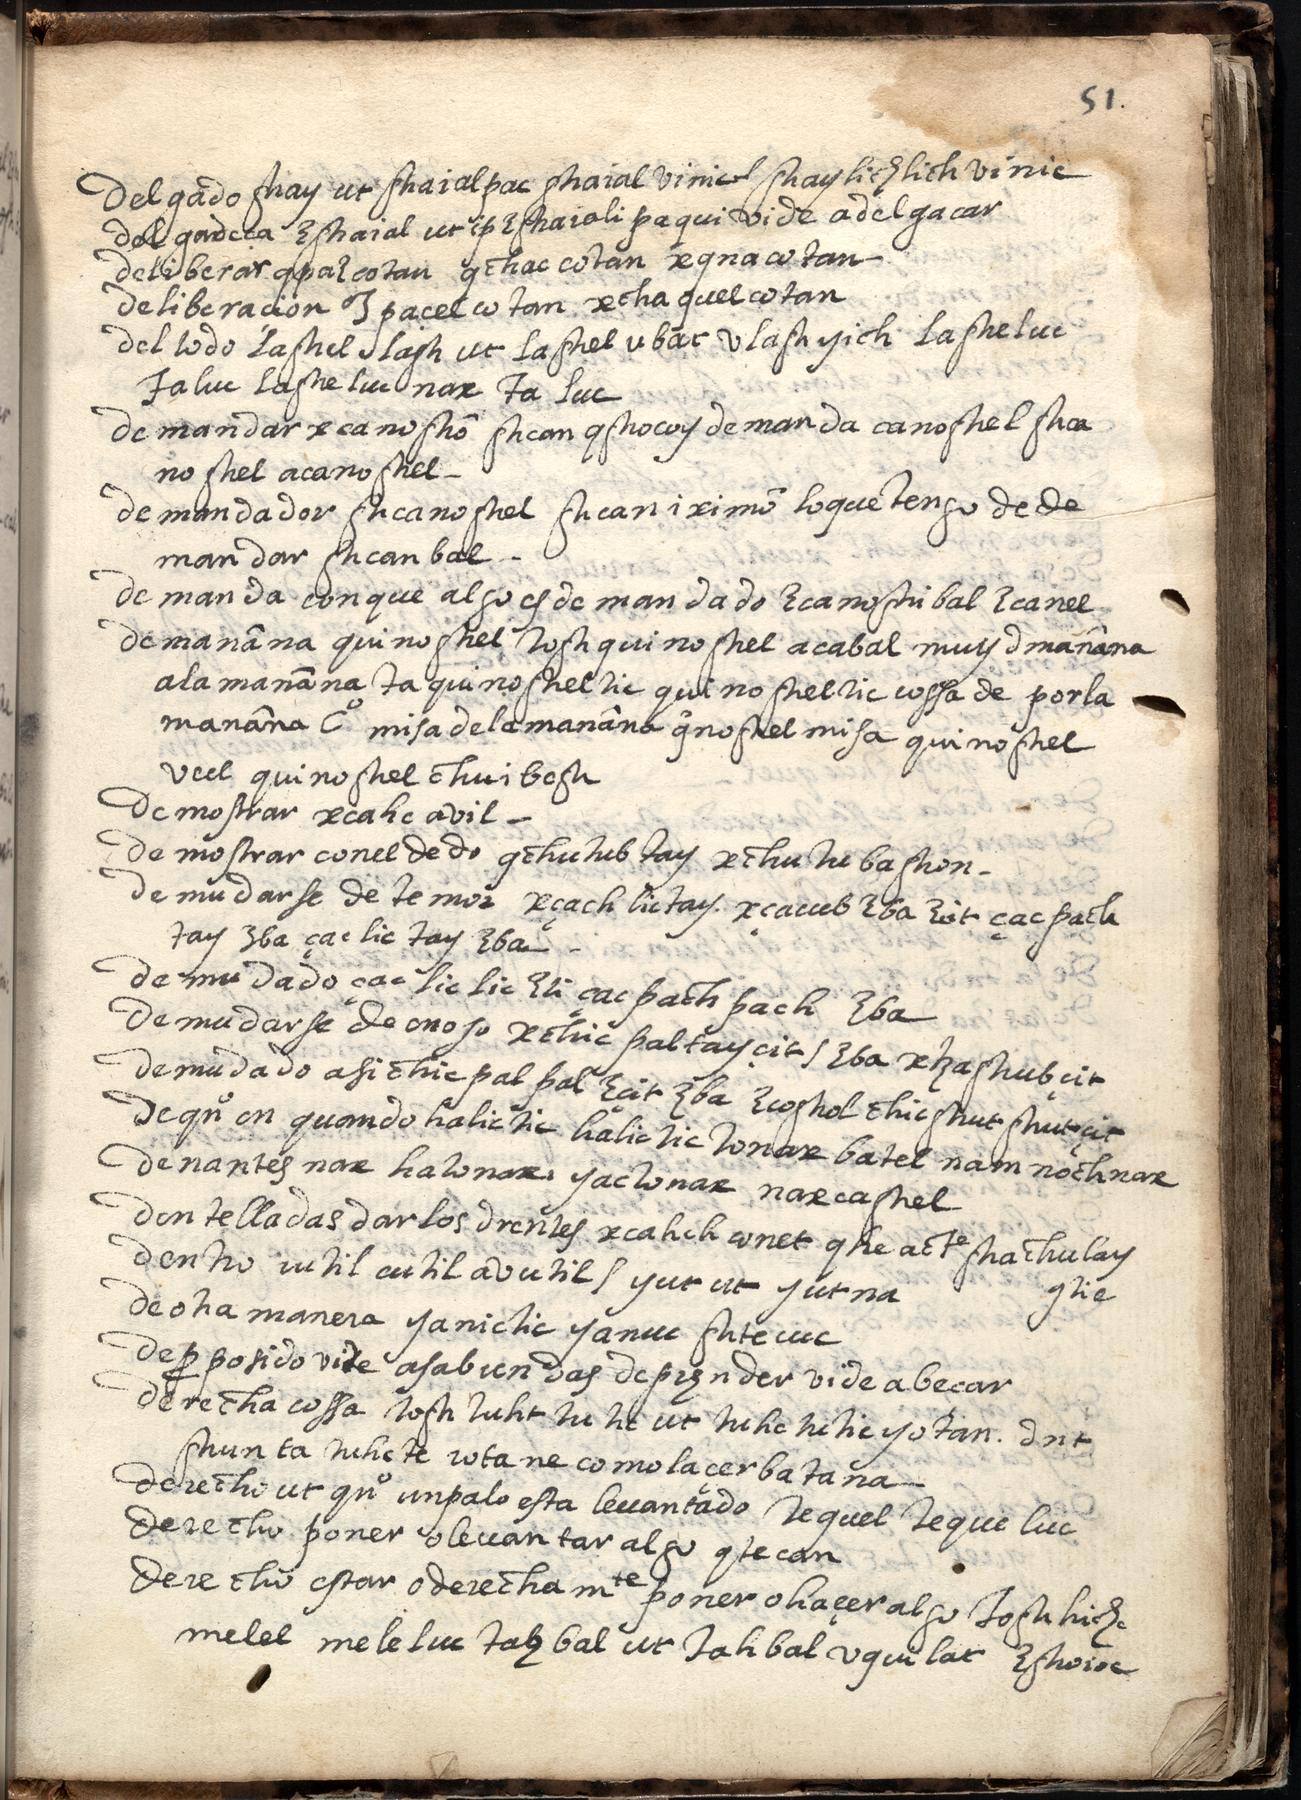 51.
Delgado shay ut shaialpac shaial vinicl shay lichlich vinic
delgadeça Eshaial ut ip Eshaiali paqui vide adelgaçar
deliberar qpaEcotan qchac cotan xqna cotan
deliberacion pacel cotan xchaquel cotan
del lodo lashel lash ut lashel v bat v lash yich lasheluc
taluc lasheluc nax ta luc
demandar xcanoshō shcan qshocoy demanda canoshel shca
noshel acanoshel
demandador shcanoshel shcan iximō loque tengo de de
mandar shcanbal
demanda conque algo es demandado Ecanoshibal Ecanel
demanāna quinoshel tosh quinoshel acabal muy d manāna
ala manāna ta quinosheltic quinosheltic cossa de porla
manāna Co misa dela manāna qnoshel misa quinoshel
vcel quinoshel chuibesh
Demostrar xcahc avil
demostrar conel dedo qchutubtay xchutubashon
demudarse de temor xçach lictay. xçacub Eba Eit çacpach
tay Eba çaclictay Eba
demudado çac liclic Eti çacpachpach Eba
demudarse de enojo xchicpaltay çit / Eba xhashub çit
demudado asi chicpalpal Eçit Eba Ecoshol chicshutshut çit
de quo en quando halictic halictic tonax batel nam nochnax
denantes nax hatonax yactonax naxcashel
dentelladas dar los drentes xcahch conet qtie acte shachulay
dentro iutil cutil avutil / yut ut yutna qtie
de otra manera yanictic yanuc shtecuc
de pposido vide asabiendas deprender vide abeçar
derecha cossa tosh tuht tuhc ut tuhc tuhc yotan. dnt
shunta tuhcte iotane como laçerbatana
derecho ut quo unpalo esta levantado tequel tequeluc
Derecho poner o levantar algo qtecan
Derecho estar o derechamte poner o haçer algo tosh hich
melel meleluc tahbal ut tahbal vquilat Eshoioc